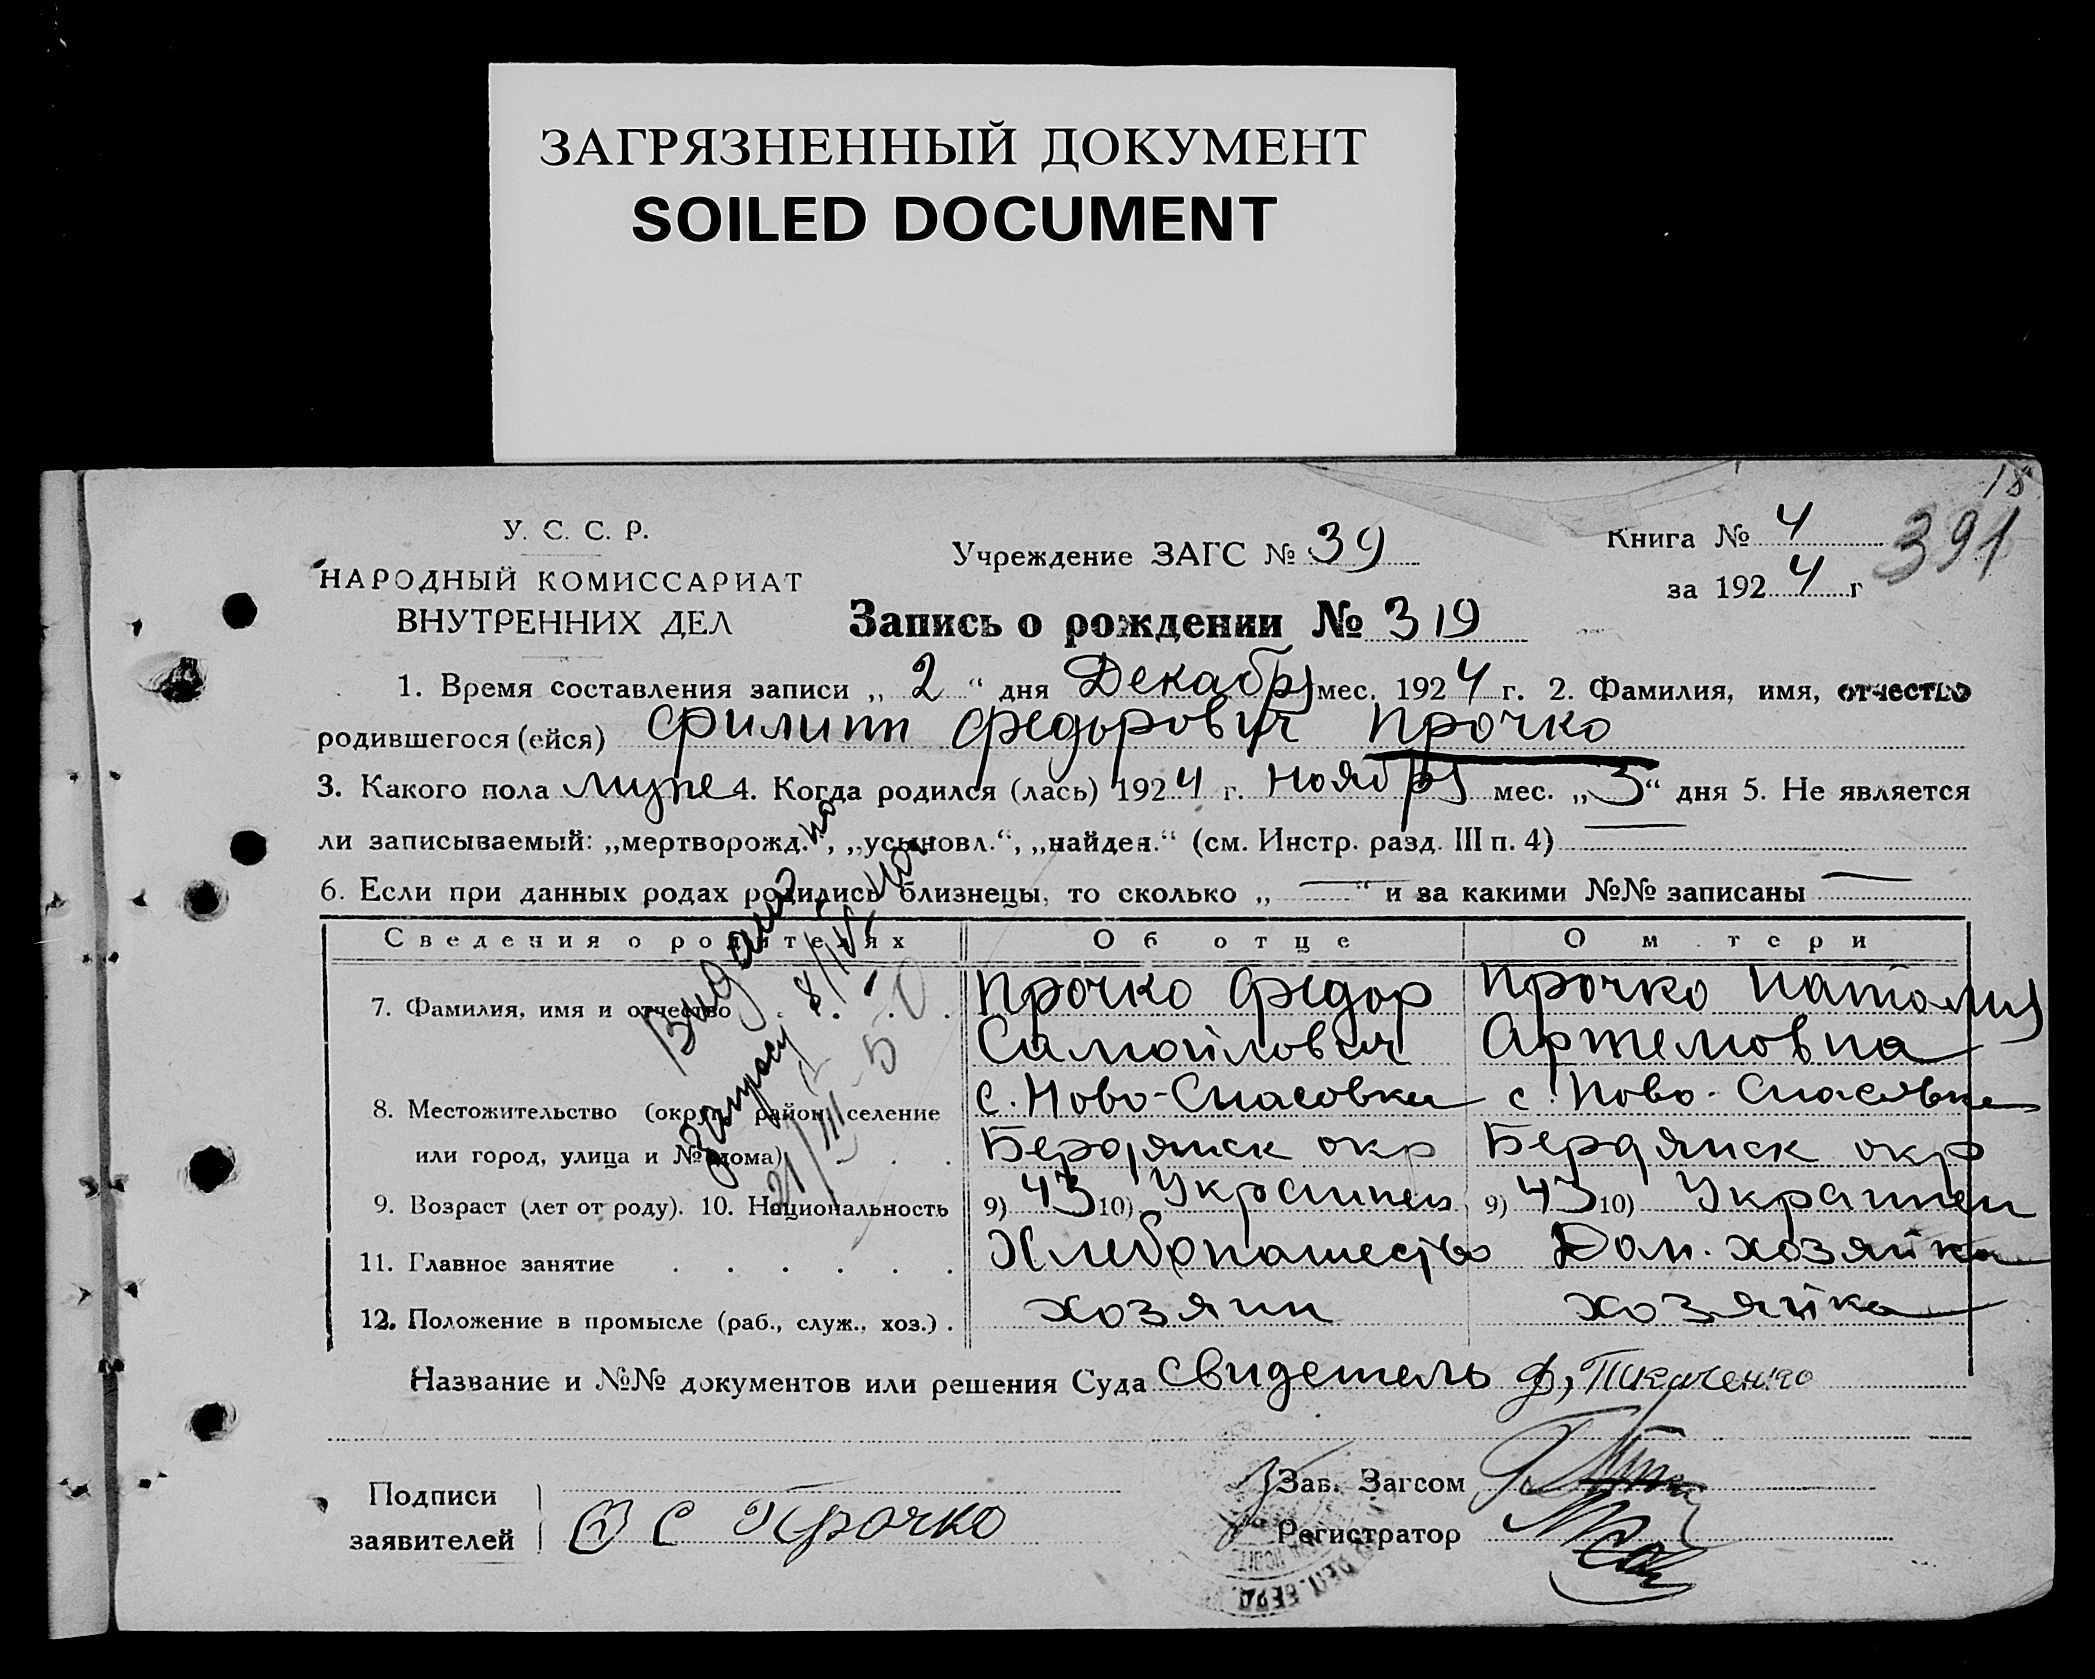 ЗАГРЯЗНЕННЫЙ ДОКУМЕНТ
SOILED DOCUMENT
18
391
У. С. С. Р.
НАРОДНЫЙ КОМИССАРИАТ
ВНУТРЕННИХ ДЕЛ
Учреждение ЗАГС № 39
Книга № 4
за 1924 г
Запись о рождении № 319
1. Время составления записи „ 2 “ дня Декабря мес. 1924 г. 2. Фамилия, имя, отчество
родившегося (ейся) Филипп Федорович Прочко
3. Какого пола муже 4. Когда родился (лась) 1924 г. Ноября мес. „3“ дня 5. Не является
ли записываемый: „мертворожд.“, „усыновл.“, „найден.“ (см. Инстр. разд. III п. 4)
6. Если при данных родах родились близнецы, то сколько „ “ и за какими №№ записаны
Сведения о родителях Об отце О м тери
7. Фамилия, имя и отчество Прочко Федор Прочко Наталия
Самойлович Артемовна
8. Местожительство (округ, район, селение с. Ново-Спасовка с. Ново-Спасовка
или город, улица и № дома) Бердянск окр Бердянск окр
9. Возраст (лет от роду). 10. Национальность 9) 43 10) Украинец 9) 43 10) Украинец
11. Главное занятие Хлебопашество Дом. хозяйка
12. Положение в промысле (раб., служ., хоз.) хозяин хозяйка
запросу 8/IV
21/III-50
Название и №№ документов или решения Суда свидетель Ф, Ткаченко
Подписи
заявителей
С Прочко
Зав. Загсом
Регистратор